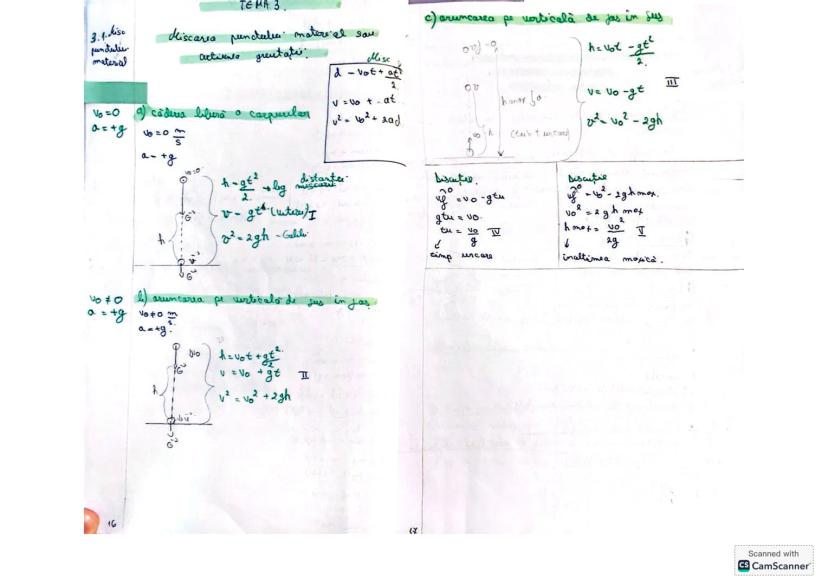 TEMA 3.
3.1. Misc
punctului
material
Miscarea punctului material sau
actiunea greutatii.
Misc
d = v0t + at²/2
v = v0 + at
v² = v0² + 2ad
v0=0
a=+g
a) căderea liberă a corpurilor
v0=0 m/s
a=+g
v0=0
h
G
v
G
h = gt²/2 → leg distantei miscarii
v = gt (vitezei) I
v² = 2gh - Galilei
v0 ≠ 0
a = +g
b) aruncarea pe verticală de sus în jos
v0≠0 m/s
a=+g.
v0
h
G
v
G
h = v0t + gt²/2
v = v0 + gt II
v² = v0² + 2gh
16
c) aruncarea pe verticală de jos în sus
h max
h
h = v0t - gt²/2
v = v0 - gt III
v² = v0² - 2gh
Discuție.
vf = v0 - gtu
gtu = v0
tu = v0/g IV
timp urcare
Discuție
vf² = v0² - 2gh max.
v0² = 2gh max
h max = v0²/2g V
inaltimea maxică.
17
Scanned with
CS CamScanner